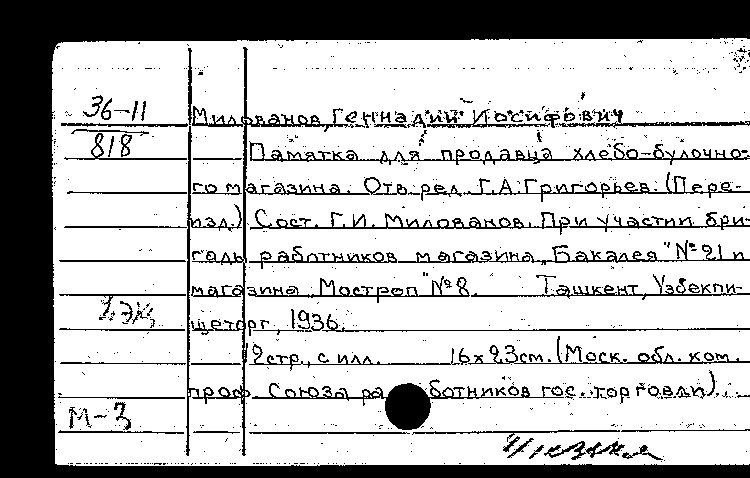 36-11
Милованов, Геннадий Иосифович
818
Памятка для продавца хлебо-булочно-
го магазина. Отв. ред. Г.А. Григорьев. (Пере-
изд.) Сост. Г.И. Милованов. При участии бри-
гады работников магазина „Бакалея" №21 и
магазина „Мостроп" №8. Ташкент, Узбекпи-
щеторг, 1936.
12 стр., с илл. 16х23см. (Моск. обл. ком.
проф. Союза работников гос. торговли).
М-3